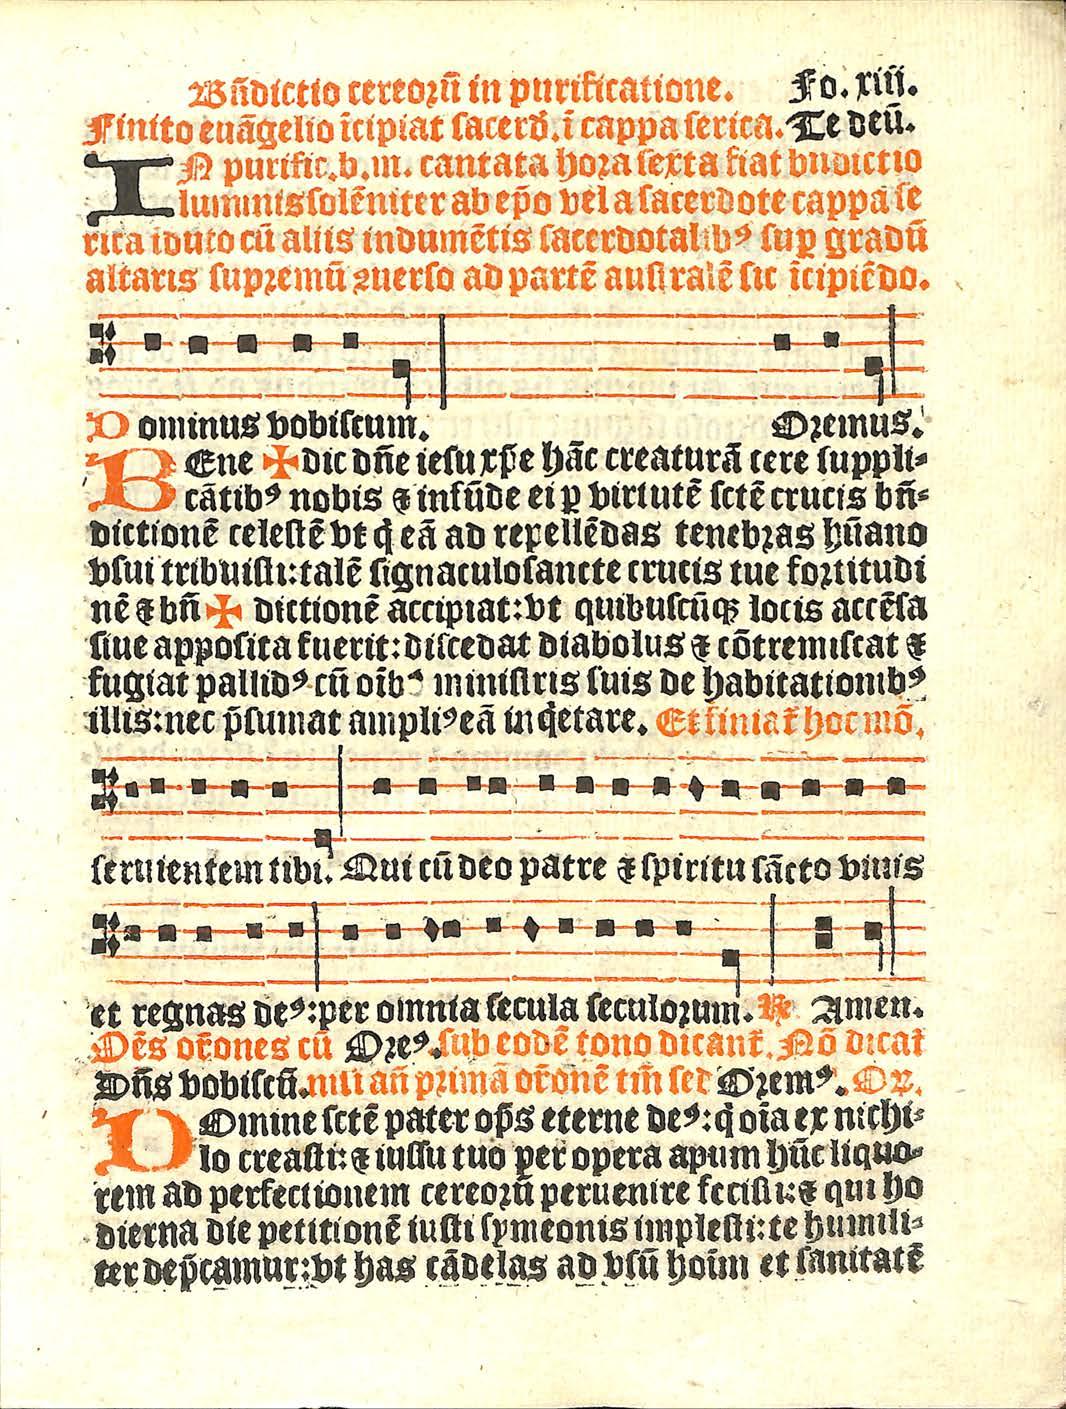 Bn̄dictio cereoꝝ̄ in purificatione. Fo. xiij.
Finito euāgelio īcipiat sacerd̄. ī cappa serica. Te deū.
IN purific. b. m. cantata hora sexta fiat bn̄dictio
luminis solēniter ab ep̄o vel a sacerdote cappa se
rica īduto cū aliis indumētis sacerdotalibꝰ suꝑ gradū
altaris supremū ꝯuerso ad partē australē sic īcipiēdo.
Dominus vobiscum. Oremus.
BEne ✠ dic dn̄e iesu xp̄e hāc creaturā cere suppli⸗
cātibꝰ nobis ⁊ infūde ei ꝑ virtutē sctē crucis bn̄⸗
dictionē celestē vt q̄ eā ad repellēdas tenebras hūano
vsui tribuisti: talē signaculo sancte crucis tue fortitudi
nē ⁊ bn̄ ✠ dictionē accipiat: vt quibuscūqꝫ locis accēsa
siue apposita fuerit: discedat diabolus ⁊ cōtremiscat ⁊
fugiat pallidꝰ cū oībꝰ ministris suis de habitationibꝰ
illis: nec p̄sumat ampliꝰ eā inq̄etare. Et finiat᷑ hoc mō.
seruientem tibi. Qui cū deo patre ⁊ spiritu sācto viuis
et regnas deꝰ: per omnia secula seculorum. ℟ Amen.
Oēs or̄ones cū Oreꝰ. sub eodē tono dicant᷑. Nō dicat᷑
Dn̄s vobiscū. nisi an̄ primā or̄onē tm̄ sed Oremꝰ. Or̄.
DOmine sctē pater op̄s eterne deꝰ: q̄ oīa ex nichi⸗
lo creasti: ⁊ iussu tuo per opera apum hūc liquo⸗
rem ad perfectionem cereorū peruenire fecisti: ⁊ qui ho
dierna die petitionē iusti symeonis implesti: te humili⸗
ter dep̄camur: vt has cādelas ad vsū hoīm et sanitatē